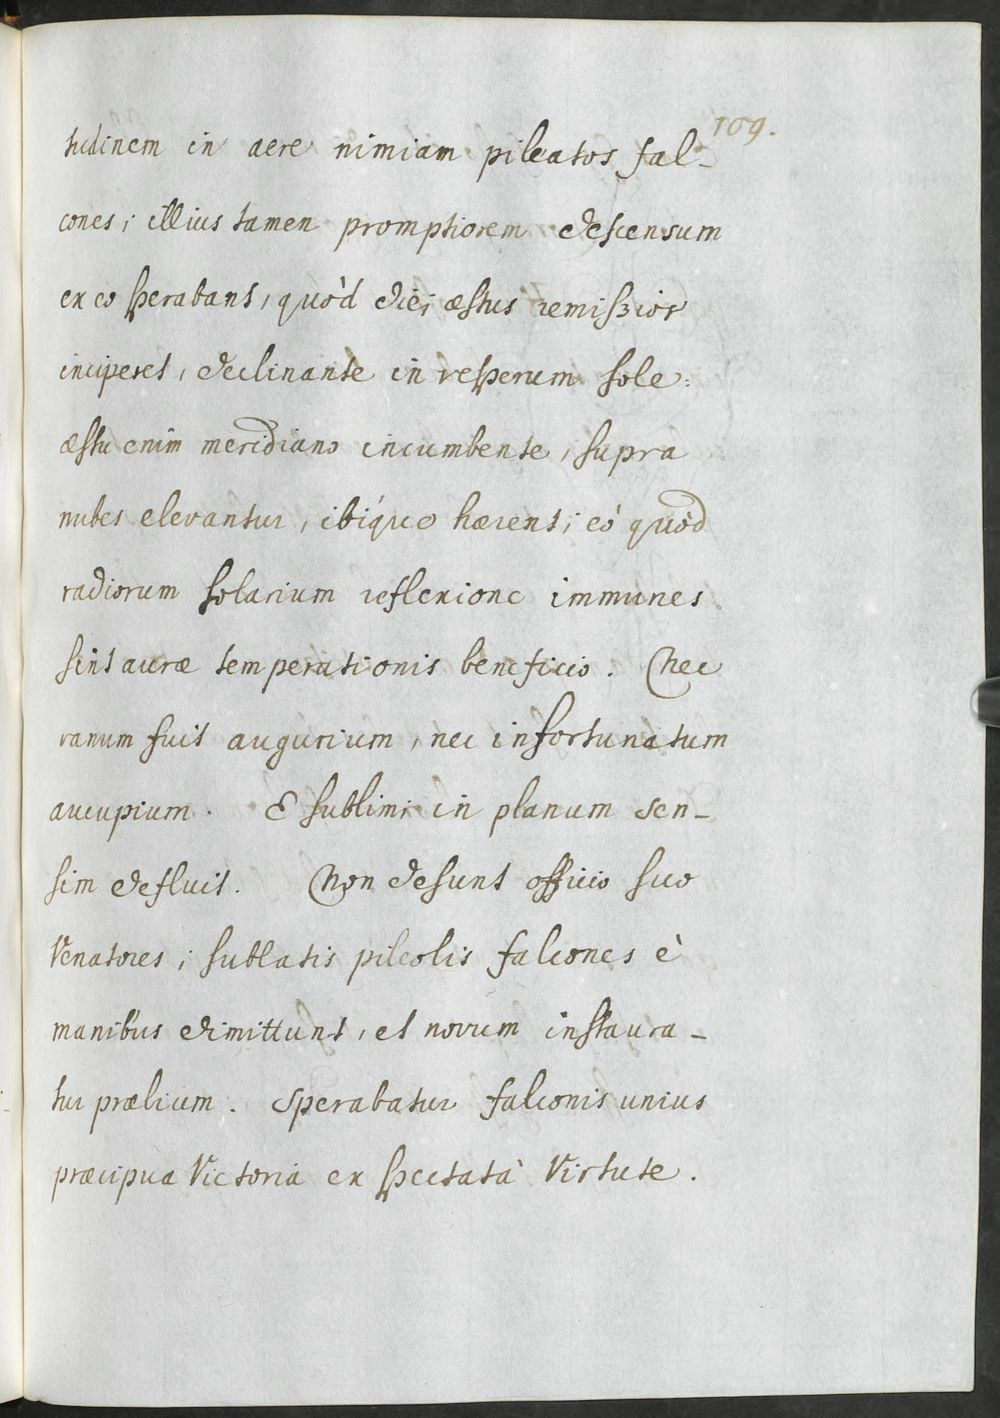 109.
tudinem in aere nimiam pileatos fal-
cones; illius tamen promptiorem descensum
ex eo sperabant, quòd diei æstus remissior
inciperet, declinante in vesperum sole:
æstu enim meridiano incumbente, supra
nubes elevantur, ibique hærent; eò quòd
radiorum solarium reflexione immunes
sint auræ temperationis beneficio. Nec
vanum fuit augurium, nec infortunatum
aucupium. E sublimi in planum sen-
sim defluit. Non desunt officio suo
Venatores; sublatis pileolis falcones è
manibus dimittunt, et novum instaura-
tur prælium. Sperabatur falconis unius
præcipua Victoria ex spectatà Virtute.